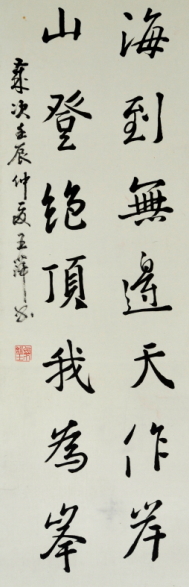 海到無邊天作岸
山登絕頂我為峯
歲次壬辰仲夏王萍書